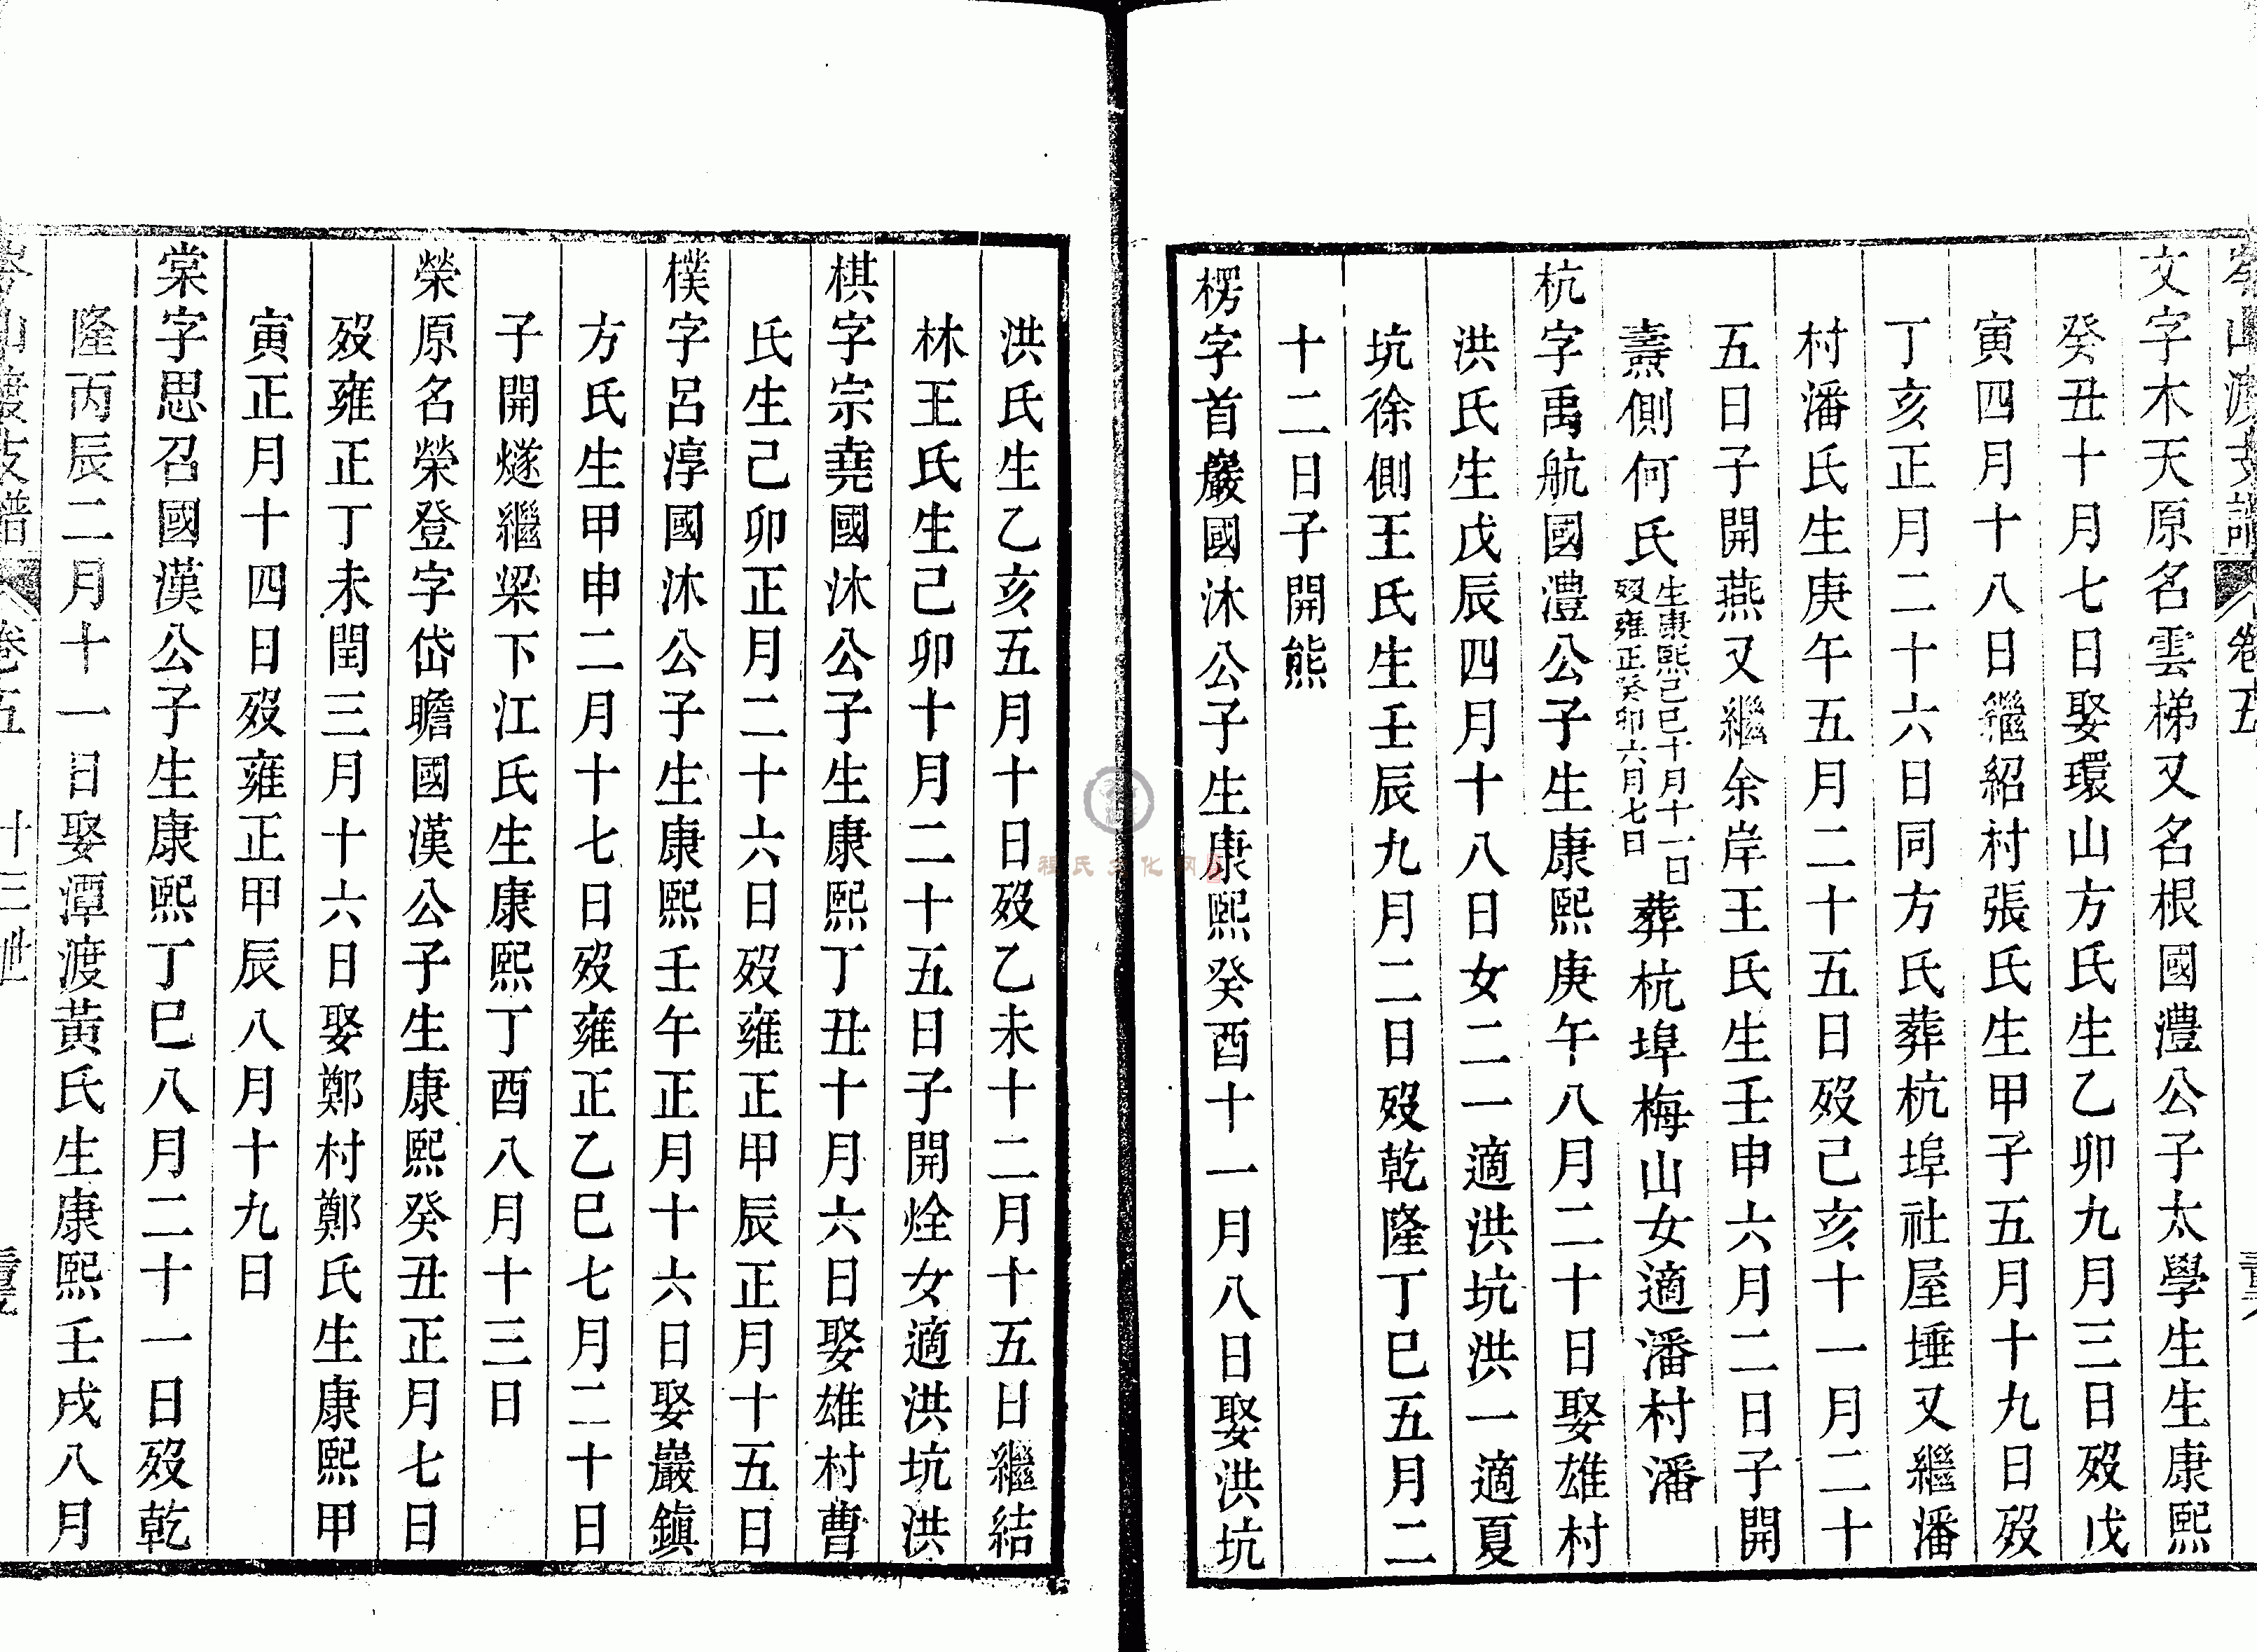 岑山渡支譜 卷五
文字木天原名雲梯又名根國澧公子太學生生康熙
癸丑十月七日娶環山方氏生乙卯九月三日歿戊
寅四月十八日繼紹村張氏生甲子五月十九日歿
丁亥正月二十六日同方氏葬杭埠社屋埵又繼潘
村潘氏生庚午五月二十五日歿己亥十一月二十
五日子開燕又繼余岸王氏生壬申六月二日子開
燾側何氏生康熙己巳十月十一日歿雍正癸卯六月七日葬杭埠梅山女適潘村潘
杭字禹航國澧公子生康熙庚午八月二十日娶雄村
洪氏生戊辰四月十八日女二一適洪坑洪一適夏
坑徐側王氏生壬辰九月二日歿乾隆丁巳五月二
十二日子開熊
楞字首巖國沐公子生康熙癸酉十一月八日娶洪坑
洪氏生乙亥五月十日歿乙未十二月十五日繼結
林王氏生己卯十月二十五日子開烇女適洪坑洪
棋字宗堯國沐公子生康熙丁丑十月六日娶雄村曹
氏生己卯正月二十六日歿雍正甲辰正月十五日
樸字呂淳國沐公子生康熙壬午正月十六日娶巖鎮
方氏生甲申二月十七日歿雍正乙巳七月二十日
子開燧繼梁下江氏生康熙丁酉八月十三日
榮原名榮登字岱瞻國漢公子生康熙癸丑正月七日
歿雍正丁未閏三月十六日娶鄭村鄭氏生康熙甲
寅正月十四日歿雍正甲辰八月十九日
棠字思召國漢公子生康熙丁巳八月二十一日歿乾
隆丙辰二月十一日娶潭渡黃氏生康熙壬戌八月
岑山渡支譜 卷五 十三世
程氏文化网